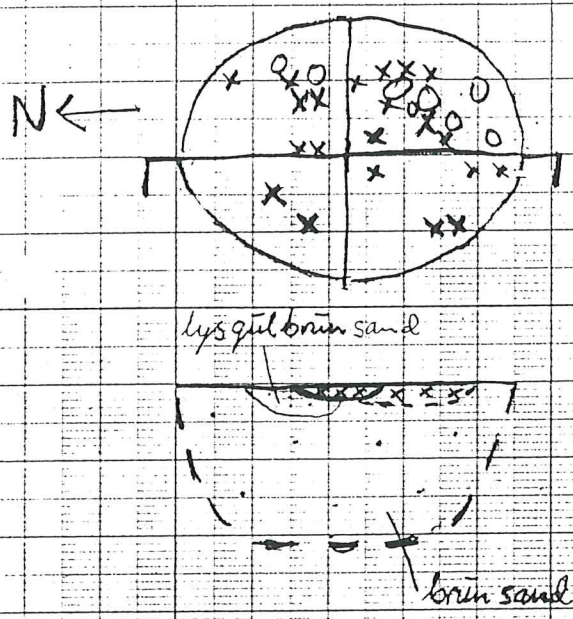 N
lys gul brun sand
brun sand